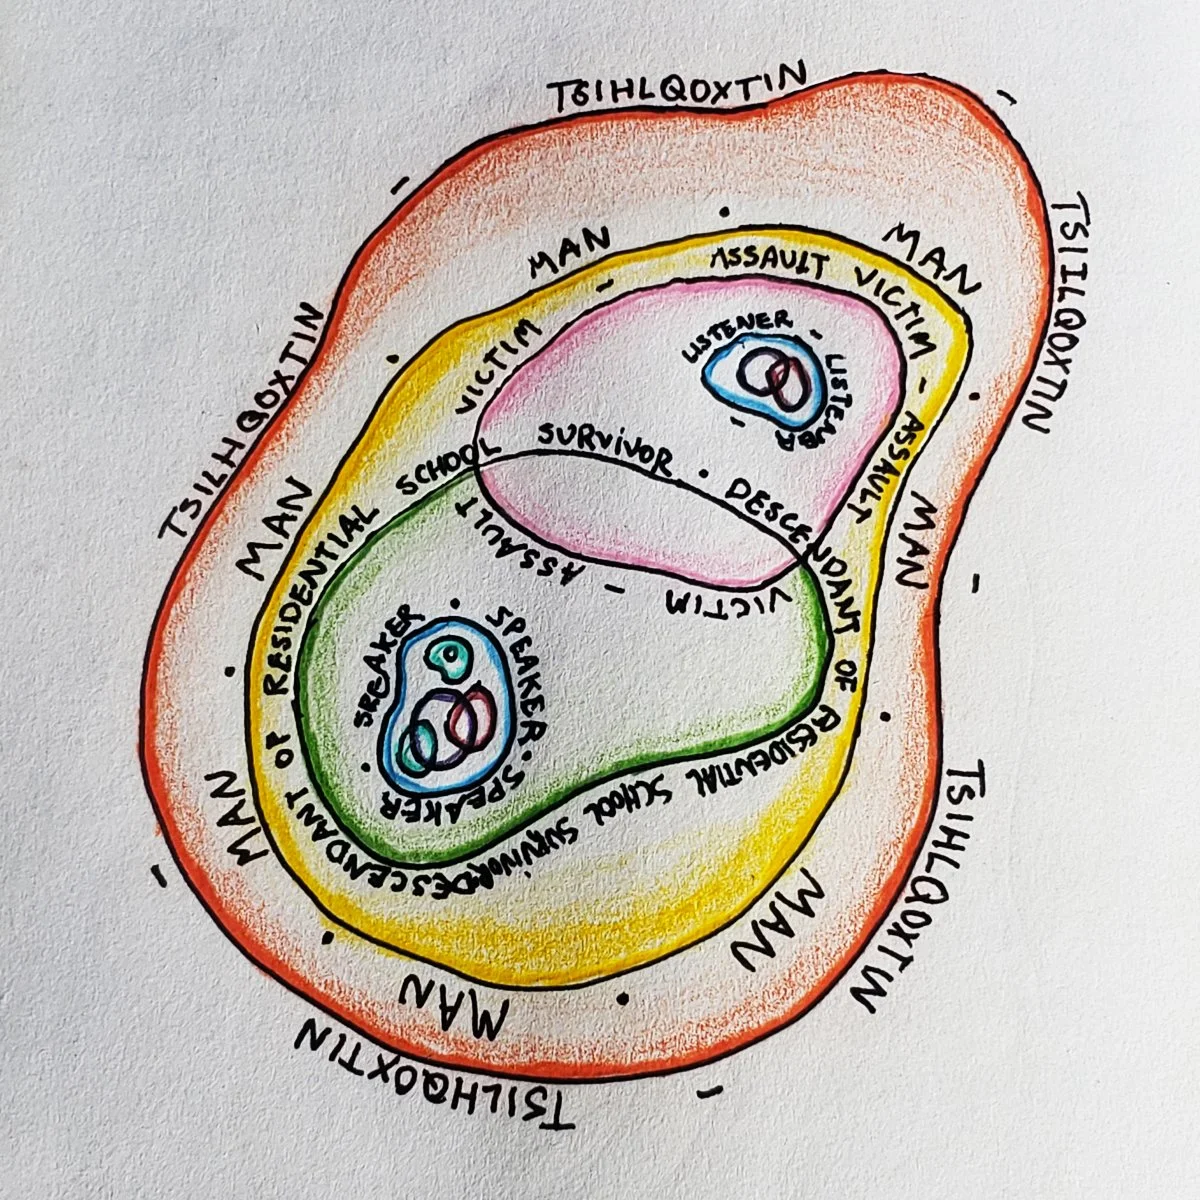 TSIHLQOXTIN -
TSIILQOXTIN -
TSIHLQOXTIN -
TSILHQOXTIN -
TSILHQOXTIN -
MAN ·
MAN ·
MAN ·
MAN ·
MAN ·
MAN ·
MAN ·
ASSAULT VICTIM - ASSAULT VICTIM - ASSAULT VICTIM -
LISTENER - LISTENER -
DESCENDANT OF RESIDENTIAL SCHOOL SURVIVOR · DESCENDANT OF RESIDENTIAL SCHOOL SURVIVOR
SPEAKER · SPEAKER · SPEAKER ·